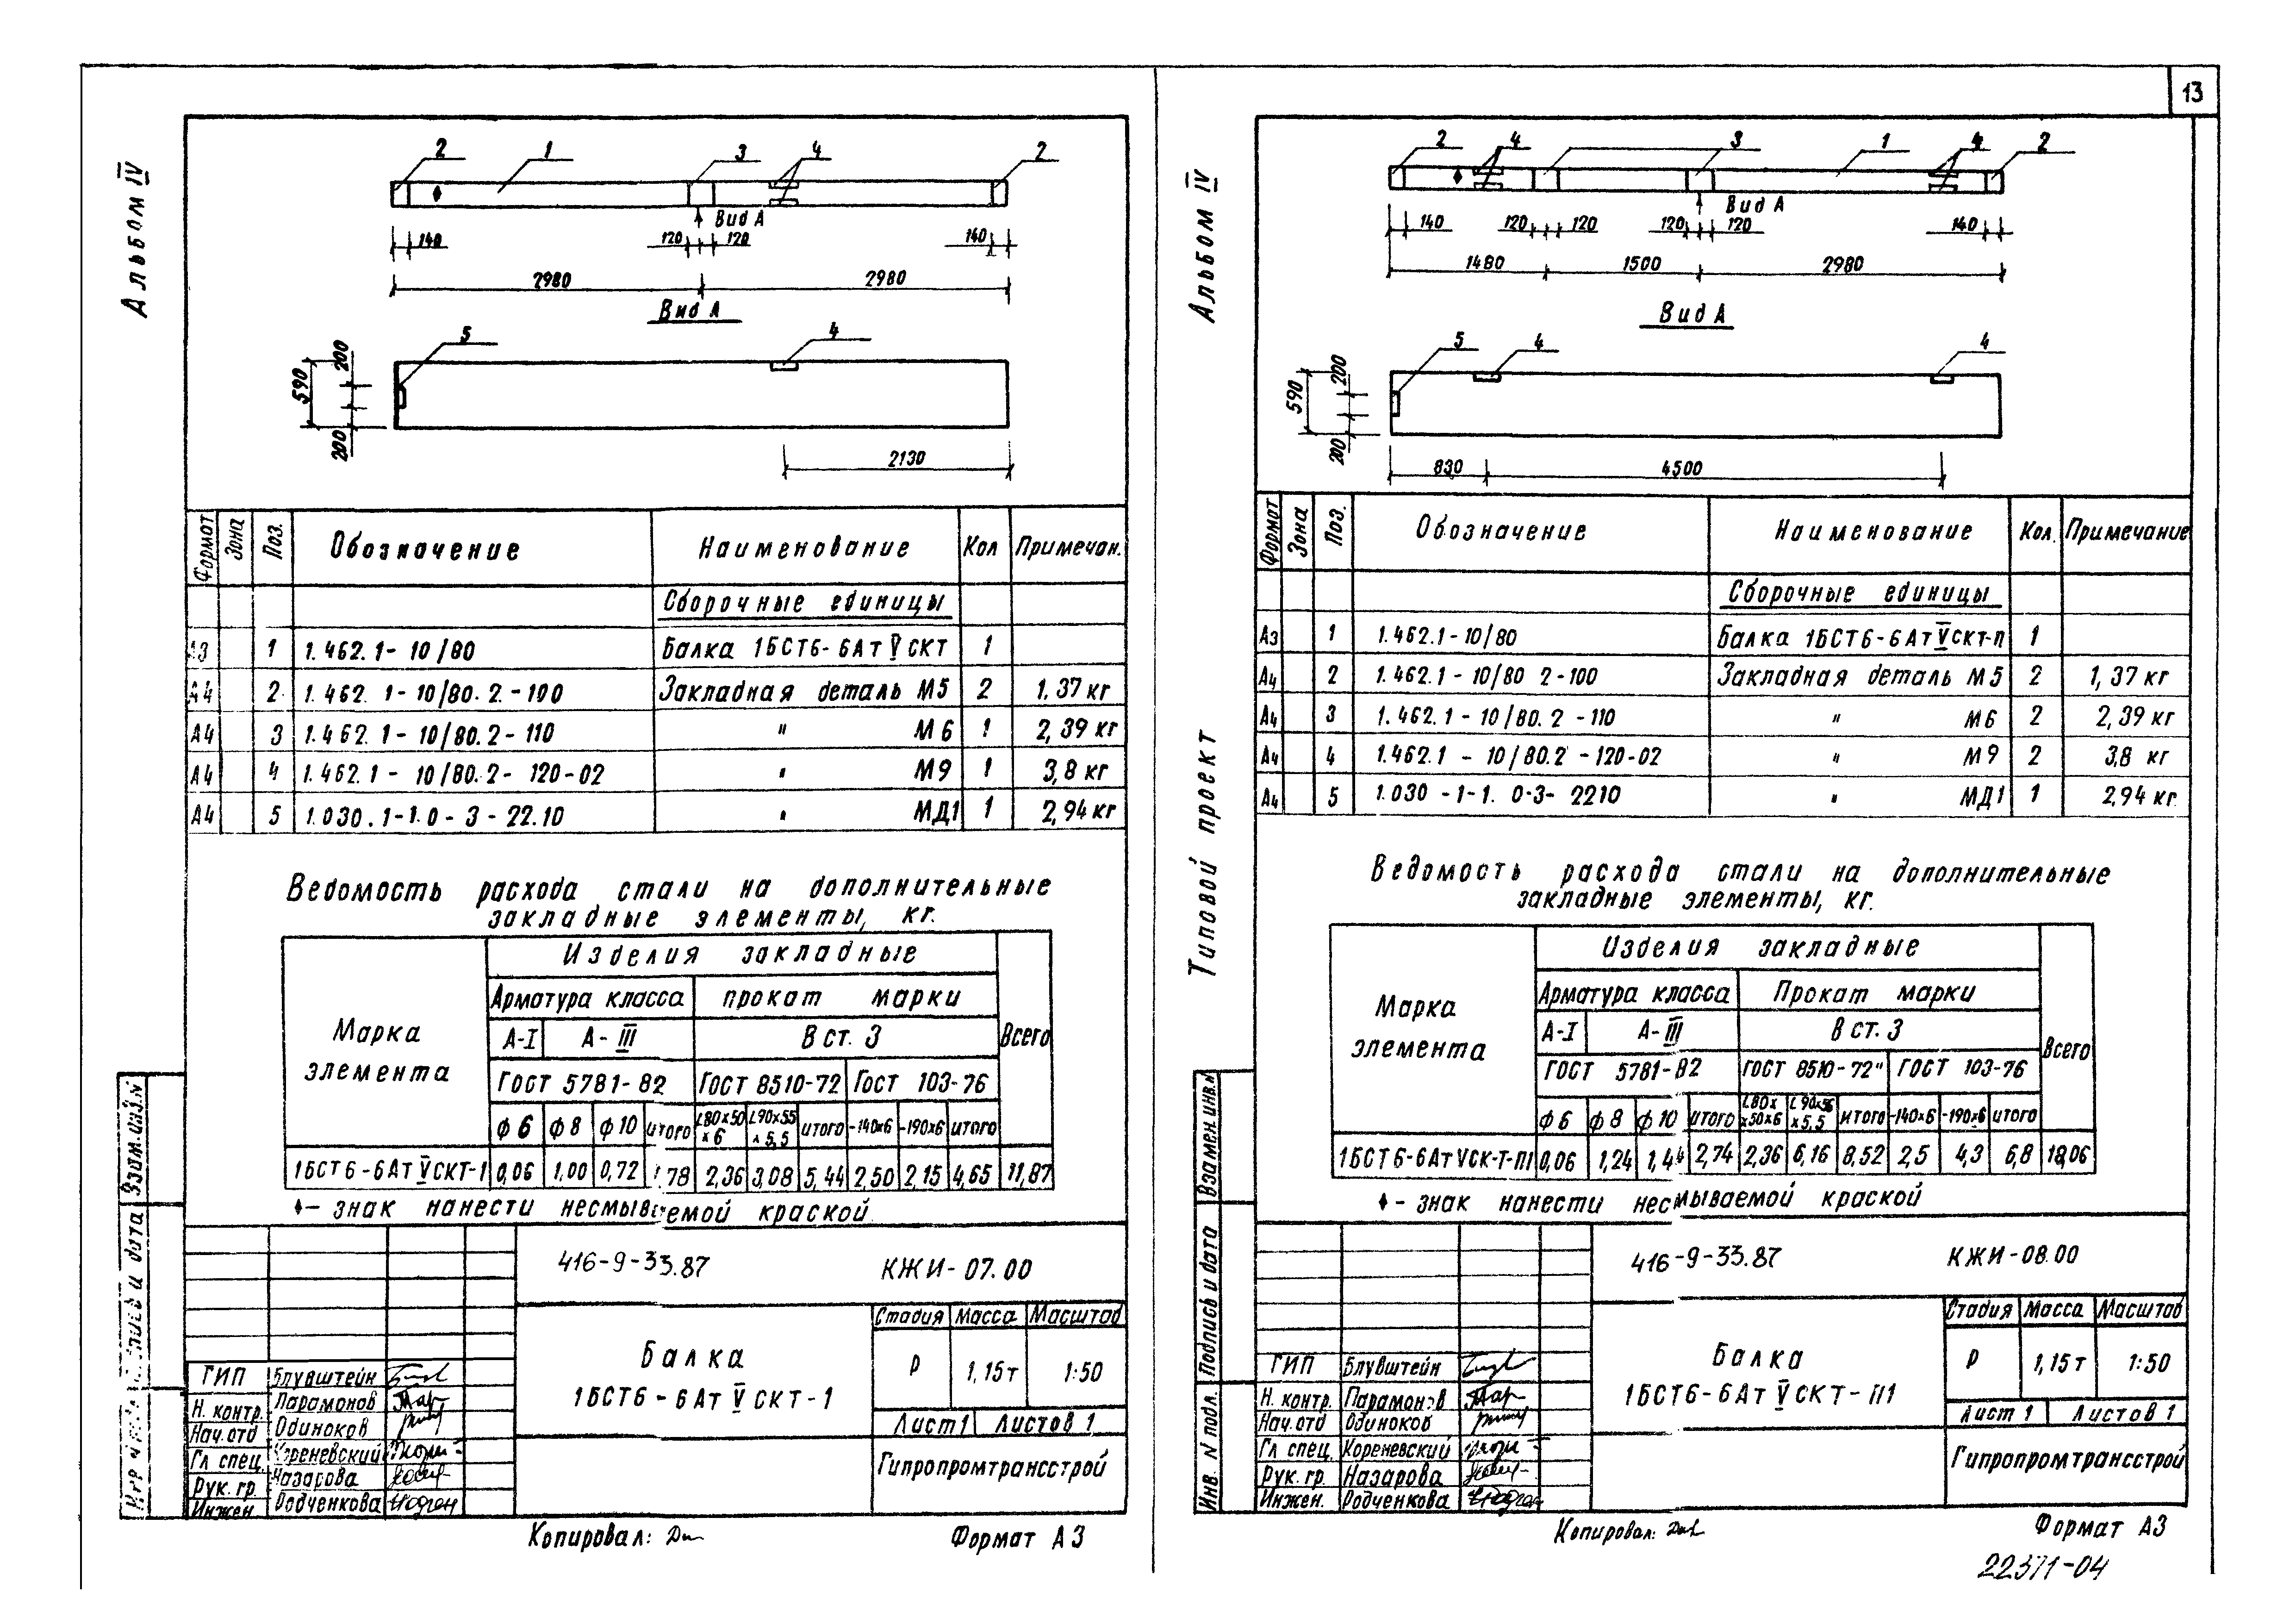 13
Альбом IV
2 1 3 4 2
Вид А
140 120 120 140
2980 2980
Вид А
5 4
590 200 200
2130
Формат Зона Поз. Обозначение Наименование Кол Примечан.
Сборочные единицы
А3 1 1.462.1-10/80 Балка 1БСТ6-6АтVСКТ 1
А4 2 1.462.1-10/80.2-100 Закладная деталь М5 2 1,37 кг
А4 3 1.462.1-10/80.2-110 " М6 1 2,39 кг
А4 4 1.462.1-10/80.2-120-02 " М9 1 3,8 кг
А4 5 1.030.1-1.0-3-22.10 " МД1 1 2,94 кг
Ведомость расхода стали на дополнительные
закладные элементы, кг.
Марка элемента Изделия закладные Всего
Арматура класса прокат марки
А-I А-III В ст. 3
ГОСТ 5781-82 ГОСТ 8510-72 ГОСТ 103-76
ф6 ф8 ф10 итого L80х50х6 L90х55х5,5 итого -140х6 -190х6 итого
1БСТ6-6АтVСКТ-1 0,06 1,00 0,72 1,78 2,36 3,08 5,44 2,50 2,15 4,65 11,87
♦- знак нанести несмываемой краской
416-9-33.87 КЖИ-07.00
Балка
1БСТ6-6АтVСКТ-1
Стадия Масса Масштаб
Р 1,15т 1:50
Лист 1 Листов 1
Гипропромтрансстрой
ГИП Блувштейн
Н. контр. Парамонов
Нач.отд Одиноков
Гл спец. Кореневский
Рук. гр Назарова
Инжен Родченкова
Взам.инв.N
Копировал:
Формат А3
Альбом IV
Типовой проект
2 4 3 1 4 2
Вид А
140 120 120 120 120 140
1480 1500 2980
Вид А
5 4 4
590 200 200
830 4500
Формат Зона Поз. Обозначение Наименование Кол. Примечание
Сборочные единицы
А3 1 1.462.1-10/80 Балка 1БСТ6-6АтVСКТ-П 1
А4 2 1.462.1-10/80 2-100 Закладная деталь М5 2 1,37 кг
А4 3 1.462.1-10/80.2-110 " М6 2 2,39 кг
А4 4 1.462.1-10/80.2-120-02 " М9 2 3,8 кг
А4 5 1.030-1-1.0-3-2210 " МД1 1 2,94 кг
Ведомость расхода стали на дополнительные
закладные элементы, кг.
Марка элемента Изделия закладные Всего
Арматура класса Прокат марки
А-I А-III В ст. 3
ГОСТ 5781-82 ГОСТ 8510-72" ГОСТ 103-76
ф6 ф8 ф10 итого L80х50х6 L90х56х5,5 итого -140х6 -190х6 итого
1БСТ6-6АтVСК-Т-П1 0,06 1,24 1,44 2,74 2,36 6,16 8,52 2,5 4,3 6,8 18,06
♦- знак нанести несмываемой краской
416-9-33.87 КЖИ-08.00
Балка
1БСТ6-6АтVСКТ-П1
Стадия Масса Масштаб
Р 1,15т 1:50
Лист 1 Листов 1
Гипропромтрансстрой
ГИП Блувштейн
Н. контр. Парамонов
Нач.отд Одиноков
Гл спец. Кореневский
Рук. гр. Назарова
Инжен. Родченкова
Инв. N подл. Подпись и дата Взамен. инв.N
Копировал:
Формат А3
22371-04